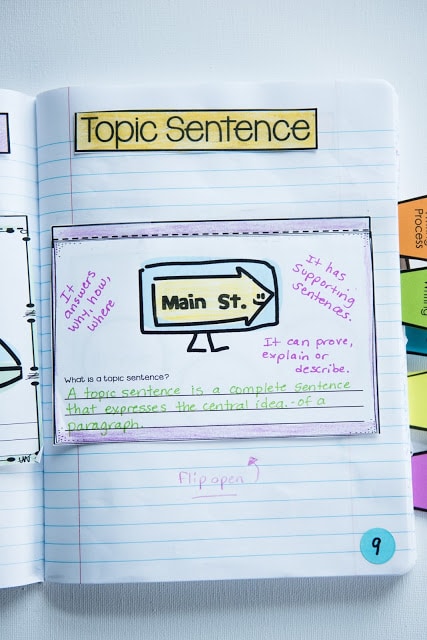 Topic Sentence
It
answers
why, how,
where
Main St.
It has
supporting
sentences.
It can prove,
explain or
describe.
What is a topic sentence?
A topic sentence is a complete sentence
that expresses the central idea. of a
paragraph.
Flip open
9
Process
Writing